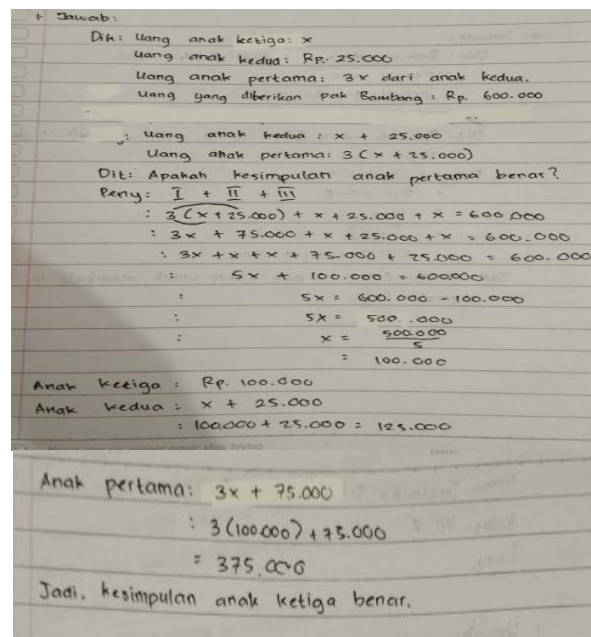 1. Jawab:
Dik: Uang anak ketiga: x
Uang anak kedua: Rp. 25.000
Uang anak pertama: 3x dari anak kedua.
Uang yang diberikan pak Bambang: Rp. 600.000
: Uang anak kedua : x + 25.000
Uang anak pertama: 3(x + 25.000)
Dit: Apakah kesimpulan anak pertama benar?
Peny: I + II + III
: 3(x + 25.000) + x + 25.000 + x = 600.000
: 3x + 75.000 + x + 25.000 + x = 600.000
: 3x + x + x + 75.000 + 25.000 = 600.000
: 5x + 100.000 = 600.000
: 5x = 600.000 - 100.000
: 5x = 500.000
: x = 500.000
5
= 100.000
Anak ketiga : Rp. 100.000
Anak kedua : x + 25.000
: 100.000 + 25.000 = 125.000
Anak pertama: 3x + 75.000
: 3(100.000) + 75.000
= 375.000
Jadi, kesimpulan anak ketiga benar.